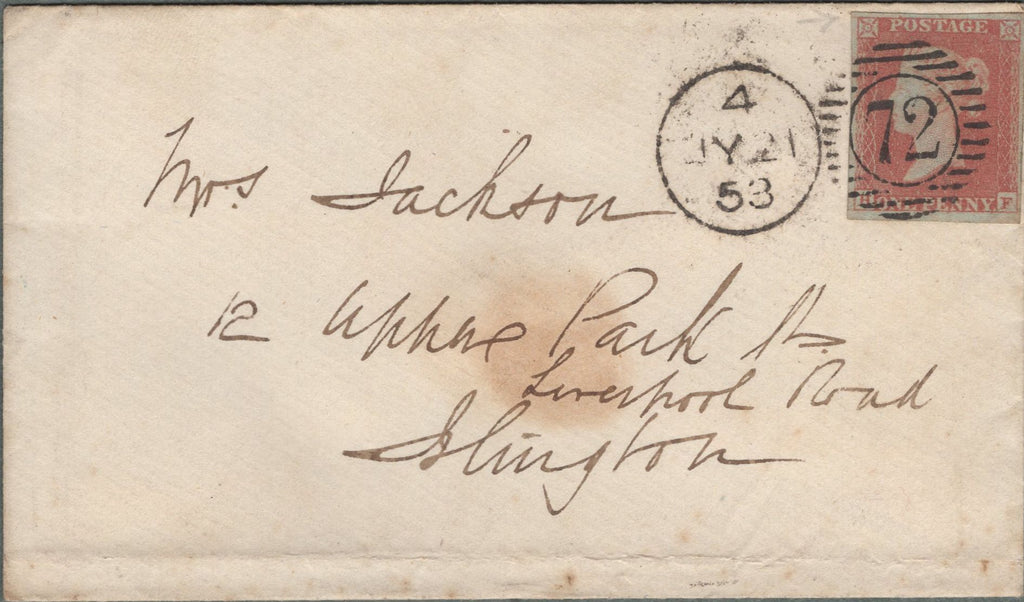 POSTAGE
4
JY 21
53
72
ONE PENNY
F
Mrs. Jackson
12 Upper Park St.
Liverpool Road
Islington